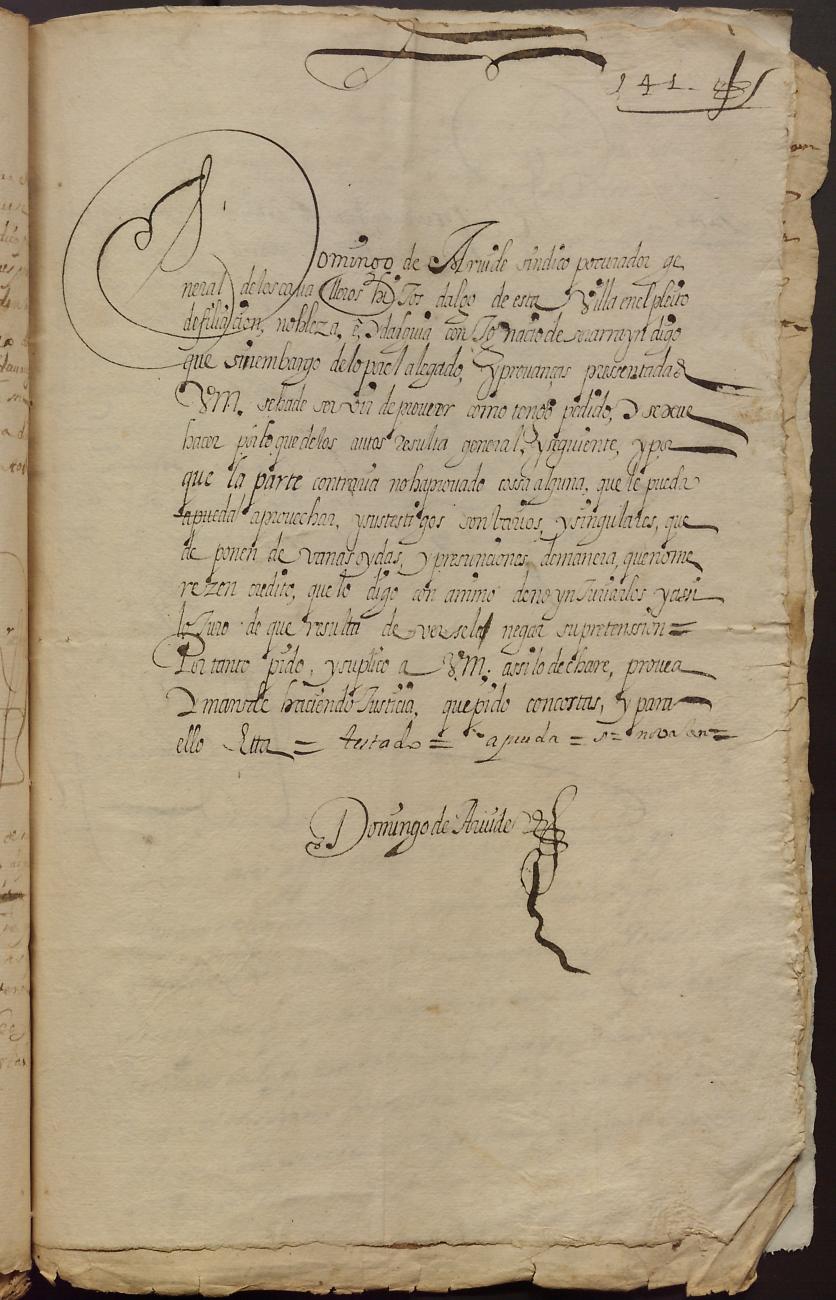 141
Domingo de Aruide sindico procurador ge
neral de los caua lleros hijos dalgo de esta Villa en el pleito
de filiacion, nobleza, e Ydalguia con Ignacio de digo
que sin embargo de lo por el alegado, y prouanças presentadas
V.M. se ha de seruir de proueer como tengo pedido, y se deue
hacer por lo que de los autos resulta general, y siguiente, y por
que la parte contraria no ha prouado cossa alguna, que le pueda
apueda aprouechar, y sus testigos son varios, y singulares, que
de ponen de vanas oydas, y presunciones, de manera, que no me
rezen credito, que lo digo con animo de no ynjuriarlos y assi
lo juro de que resulta de versele negar su pretenssion =
Por tanto pido, y suplico a V.M. assi lo dechare, prouea
y mande haciendo justicia, que pido con costas, y para
ello Etta = testado = apueda = no vala =
Domingo de Aruide